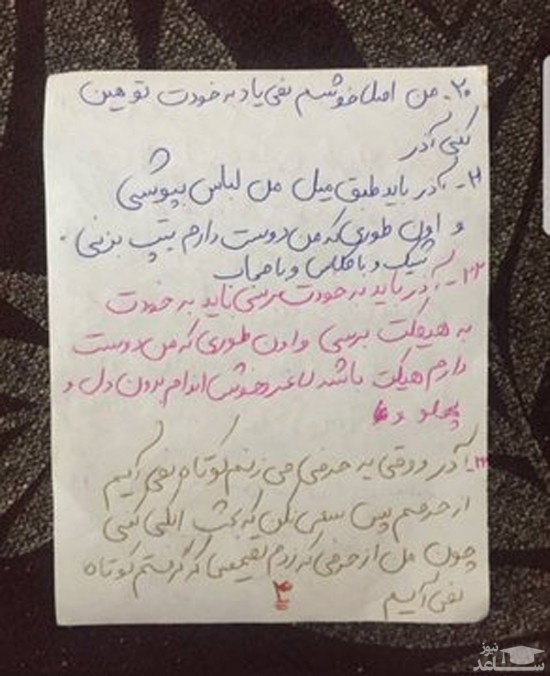 ۲۰- من اصلا خوشم نمی یاد به خودت توهین
کنی آذر
۲۱- آذر باید طبق میل من لباس بپوشی
و اون طوری که من دوست دارم تیپ بزنی
شیک و با کلاس و با حجاب
۲۲- آذر باید به خودت برسی باید به خودت
به هیکلت برسی و اون طوری که من دوست
دارم هیکلت باشد لاغر خوش اندام بدون دل و
پهلو و
۲۳- آذر وقتی یه حرفی می زنم کوتاه نمی آیم
از حرفم پس سعی نکن که بحث الکی کنی
چون من از حرفی که زدم تصمیمی که گرفتم کوتاه
نمی آیم
۴
نیوز
ســاعد